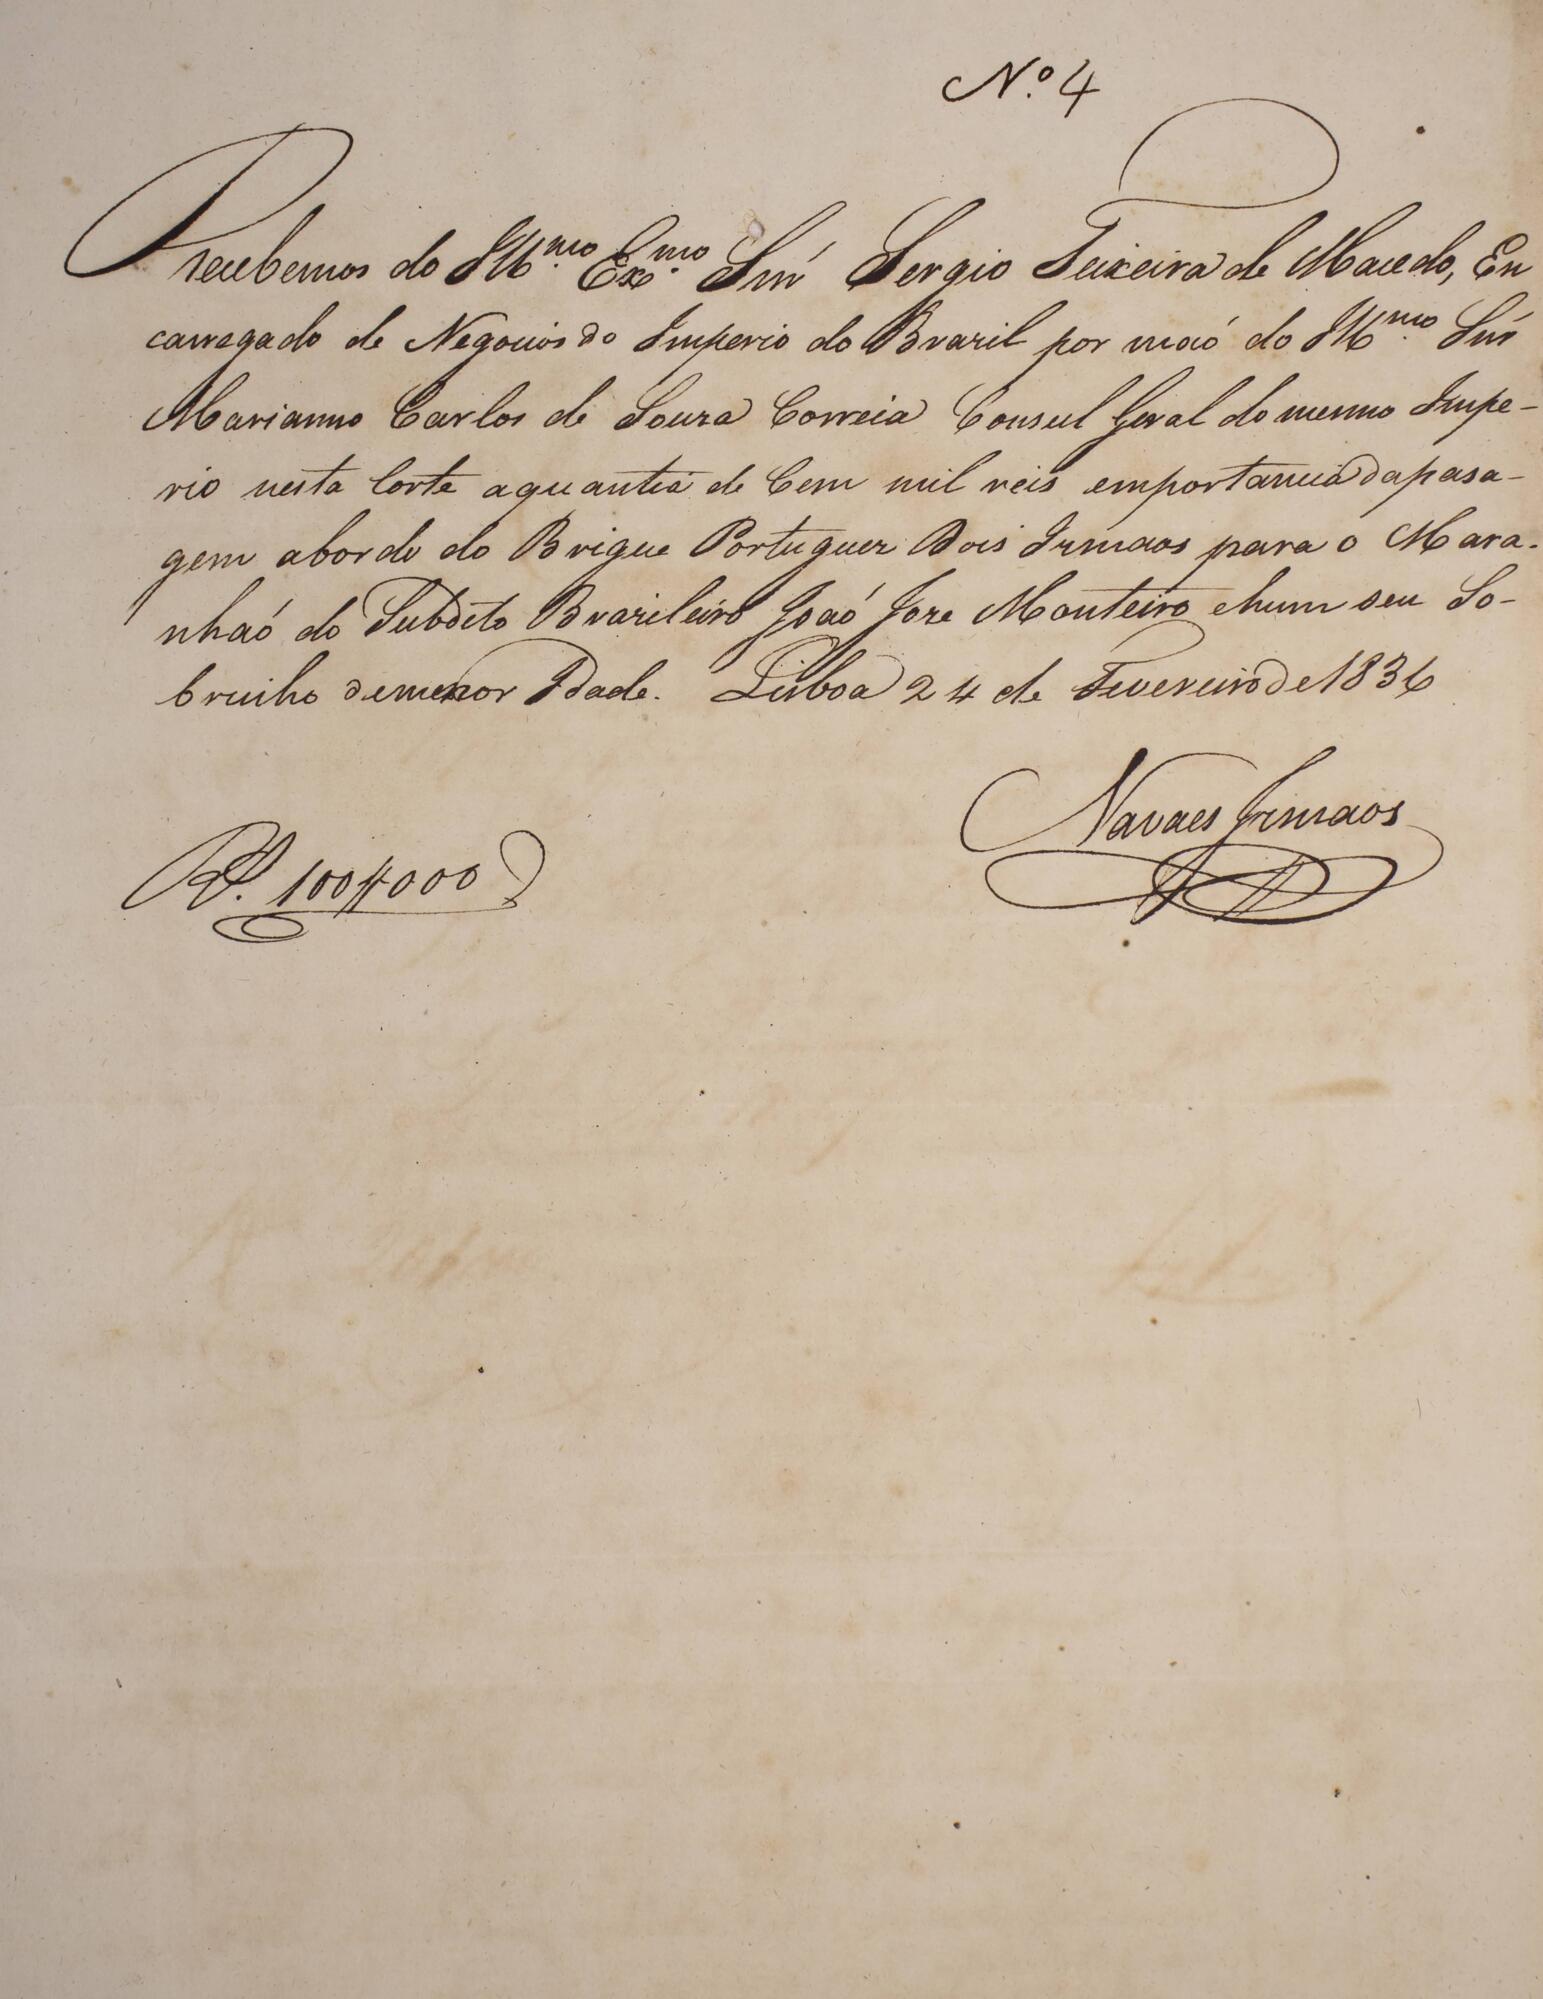 N.º 4
Recebemos do Ill.mo Ex.mo Snr Sergio Teixeira de Macedo, En
carregado de Negocios do Imperio do Brazil por maó do Ill.mo Snr
Marianno Carlos de Souza Correia Consul Geral do mesmo Impe-
rio nesta Corte aquantia de Cem mil reis emportancia dapasa-
gem abordo do Brigue Portuguez Dois Irmaos para o Mara-
nhaó do Subdito Brazileiro Joaó Joze Monteiro ehum seu So-
brinho demenor Idade. Lisboa 24 de Fevereiro de 1836
Navaes Irmaos
R.s 100$000